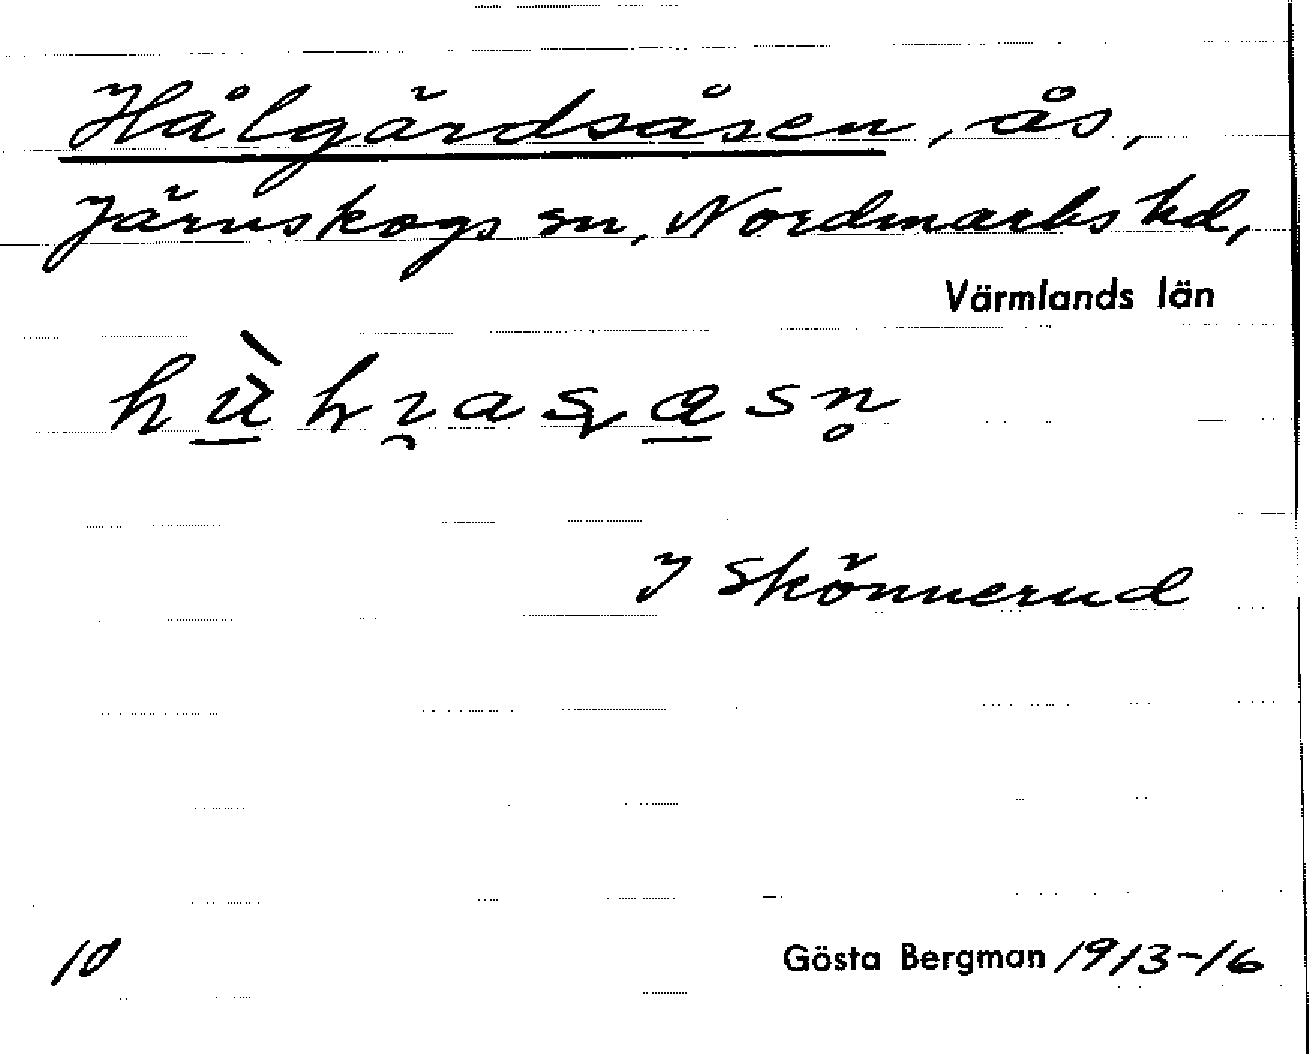 Hålgärdsåsen, ås,
Järnskogs sn, Nordmarks hd,
Värmlands län
I Skönnerud
10
Gösta Bergman 1913-16